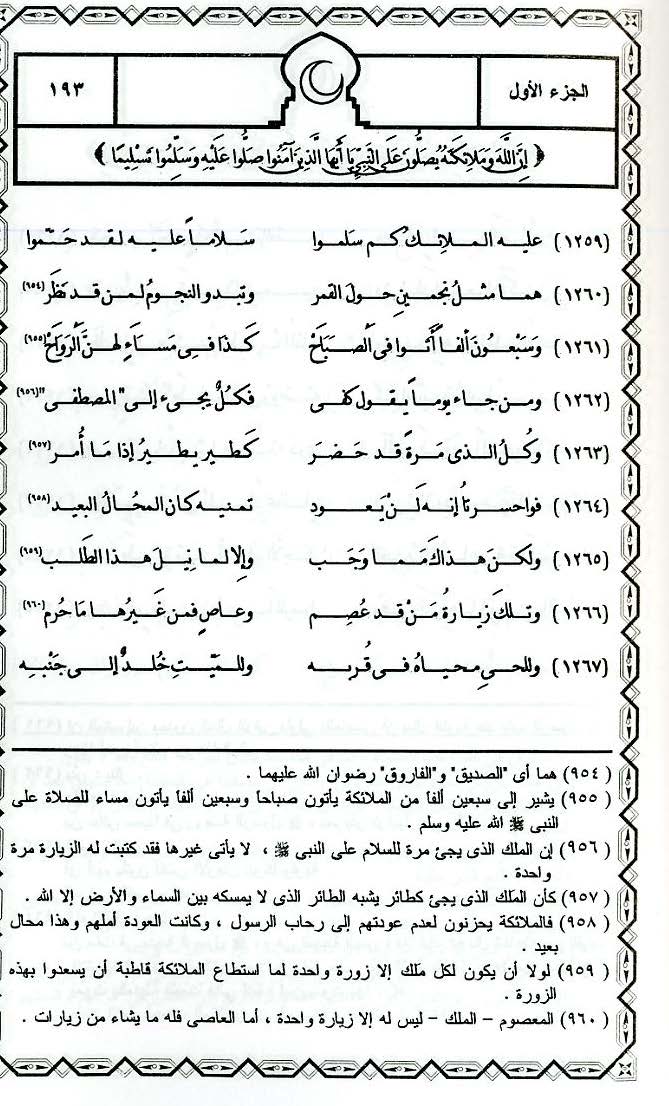 الجزء الأول
١٩٣
﴿ إِنَّ اللَّهَ وَمَلَائِكَتَهُ يُصَلُّونَ عَلَى النَّبِيِّ يَا أَيُّهَا الَّذِينَ آمَنُوا صَلُّوا عَلَيْهِ وَسَلِّمُوا تَسْلِيمًا ﴾
(١٢٥٩) عليه الملائكُ كم سلموا سلاماً عليه لقد حتّموا
(١٢٦٠) هما مثلُ نجمينِ حولَ القمر وتبدو النجومُ لمن قد نظَر (٩٥٤)
(١٢٦١) وَسَبْعُونَ ألفاً أَتَوا فى الصَّبَاحْ كذا فى مَسَاءٍ لهنَّ الرَوَاحْ (٩٥٥)
(١٢٦٢) ومن جاء يوماً يقول كفى فكلٌ يجىء إلى "المصطفى" (٩٥٦)
(١٢٦٣) وكُل الذى مَرةً قد حَضَر كطيرٍ يطيرُ إذا مَا أُمر (٩٥٧)
(١٢٦٤) فواحسرتاُ إنه لَنْ يَعود تمنيه كان المحالُ البعيد (٩٥٨)
(١٢٦٥) ولكنَ هذاكَ ممَا وَجَب وإلا لما نِيلَ هذا الطَلب (٩٥٩)
(١٢٦٦) وتلكَ زيارةُ مَنْ قد عُصِم وعاصٍ فمن غَيرُها مَا حُرم (٩٦٠)
(١٢٦٧) وللحىِ محياهُ فى قُربه وللمَيّتِ خُلدٌ إلى جَنْبِه
(٩٥٤) هما أى "الصديق" و"الفاروق" رضوان الله عليهما .
(٩٥٥) يشير إلى سبعين ألفاً من الملائكة يأتون صباحاً وسبعين ألفاً يأتون مساء للصلاة على
النبى ﷺ الله عليه وسلم .
(٩٥٦) إن الملك الذى يجئ مرة للسلام على النبى ﷺ ، لا يأتى غيرها فقد كتبت له الزيارة مرة
واحدة .
(٩٥٧) كأن المَلك الذى يجئ كطائر يشبه الطائر الذى لا يمسكه بين السماء والأرض إلا الله .
(٩٥٨) فالملائكة يحزنون لعدم عودتهم إلى رحاب الرسول ، وكانت العودة أملهم وهذا محال
بعيد .
(٩٥٩) لولا أن يكون لكل ملك إلا زورة واحدة لما استطاع الملائكة قاطبة أن يسعدوا بهذه
الزورة .
(٩٦٠) المعصوم – الملك – ليس له إلا زيارة واحدة ، أما العاصى فله ما يشاء من زيارات .